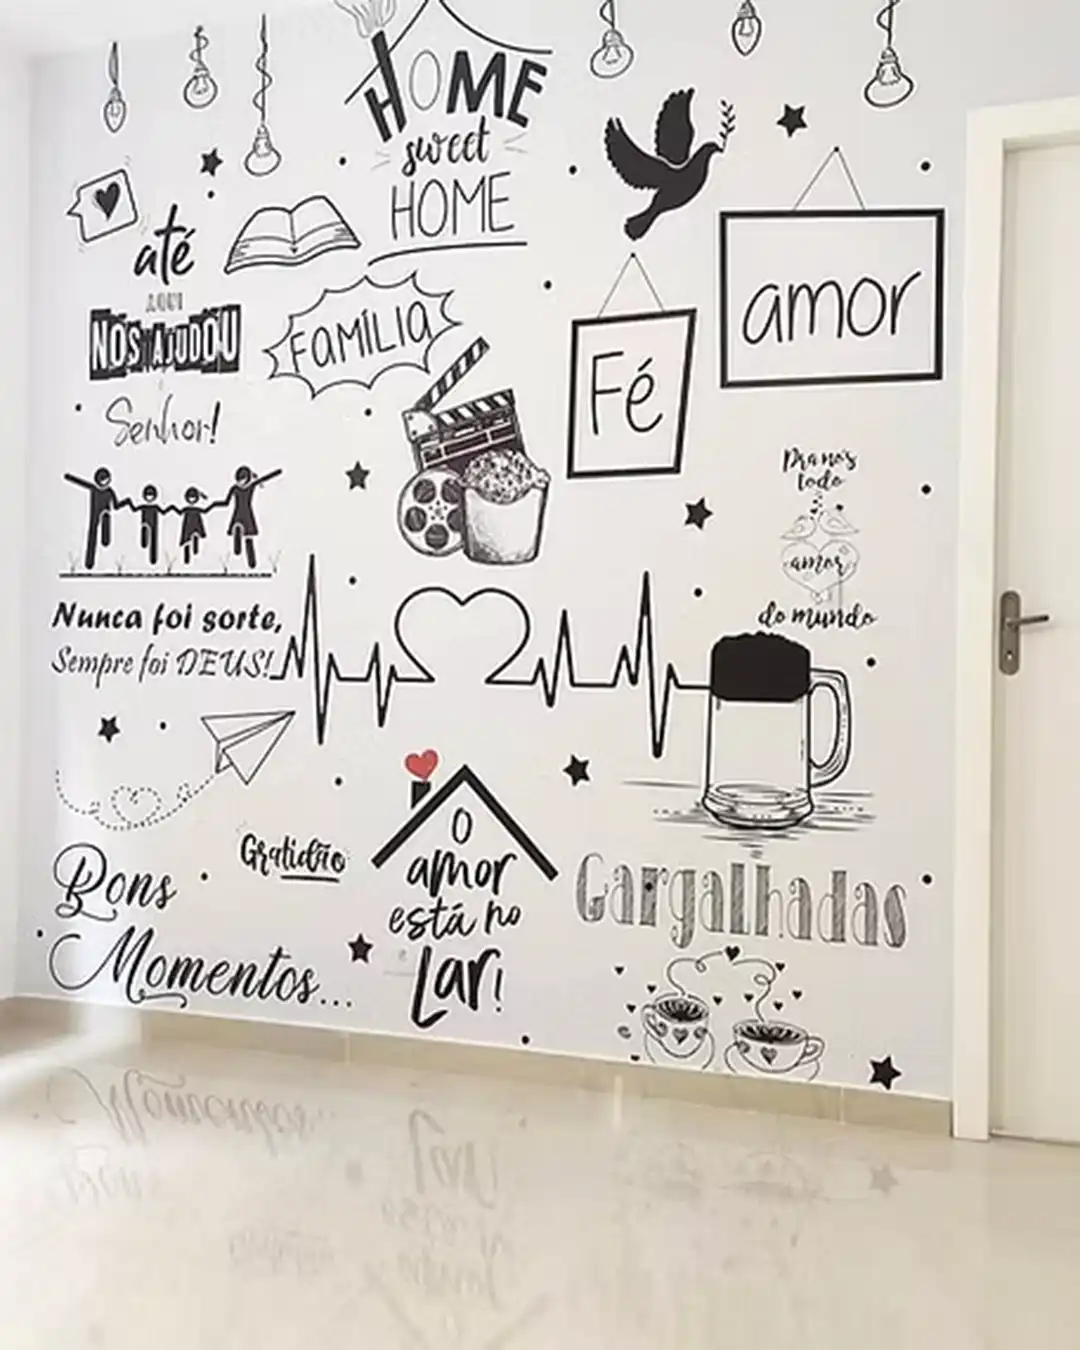 HOME
sweet
HOME
até
AQUI
NOS AJUDOU
o
Senhor!
FAMÍLIA
Fé
amor
Pra nós
todo
amor
do mundo
Nunca foi sorte,
Sempre foi DEUS!
Gratidão
O
amor
está no
Lar!
Gargalhadas
Bons
Momentos...